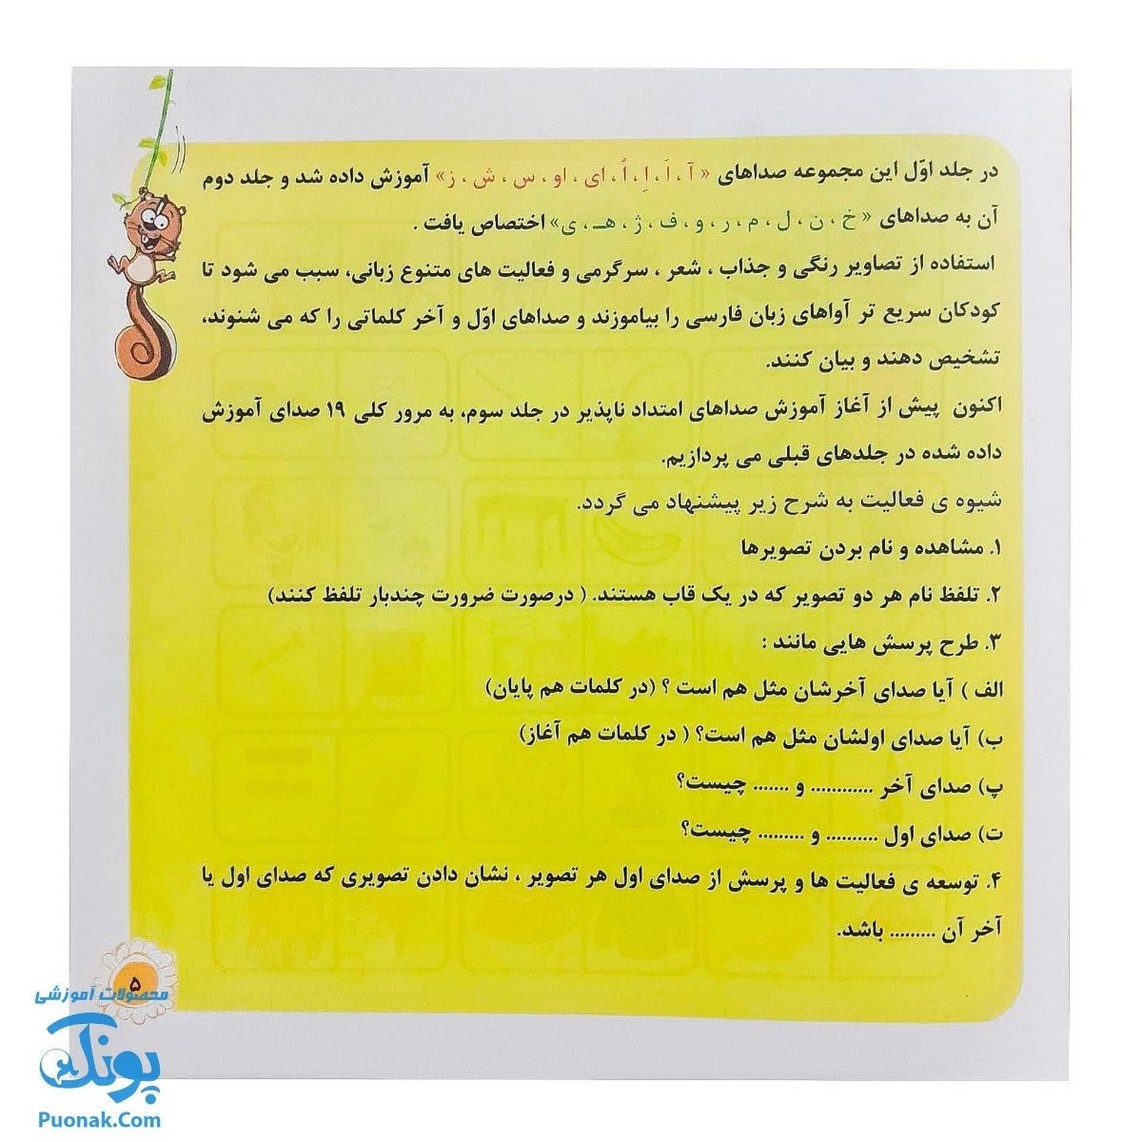 در جلد اوّل این مجموعه صداهای « آ ، اَ ، اِ ، اُ ، ای ، او ، س ، ش ، ز» آموزش داده شد و جلد دوم
آن به صداهای « خ ، ن ، ل ، م ، ر ، و ، ف ، ژ ، هـ ، ی» اختصاص یافت .
استفاده از تصاویر رنگی و جذاب ، شعر ، سرگرمی و فعالیت های متنوع زبانی، سبب می شود تا
کودکان سریع تر آواهای زبان فارسی را بیاموزند و صداهای اوّل و آخر کلماتی را که می شنوند،
تشخیص دهند و بیان کنند.
اکنون پیش از آغاز آموزش صداهای امتداد ناپذیر در جلد سوم، به مرور کلی ۱۹ صدای آموزش
داده شده در جلدهای قبلی می پردازیم.
شیوه ی فعالیت به شرح زیر پیشنهاد می گردد.
۱. مشاهده و نام بردن تصویرها
۲. تلفظ نام هر دو تصویر که در یک قاب هستند. ( درصورت ضرورت چندبار تلفظ کنند)
۳. طرح پرسش هایی مانند :
الف ) آیا صدای آخرشان مثل هم است ؟ (در کلمات هم پایان)
ب) آیا صدای اولشان مثل هم است؟ ( در کلمات هم آغاز)
پ) صدای آخر ............ و ....... چیست؟
ت) صدای اول .......... و ......... چیست؟
۴. توسعه ی فعالیت ها و پرسش از صدای اول هر تصویر ، نشان دادن تصویری که صدای اول یا
آخر آن ......... باشد.
۵
محصولات آموزشی
پونک
Puonak.Com